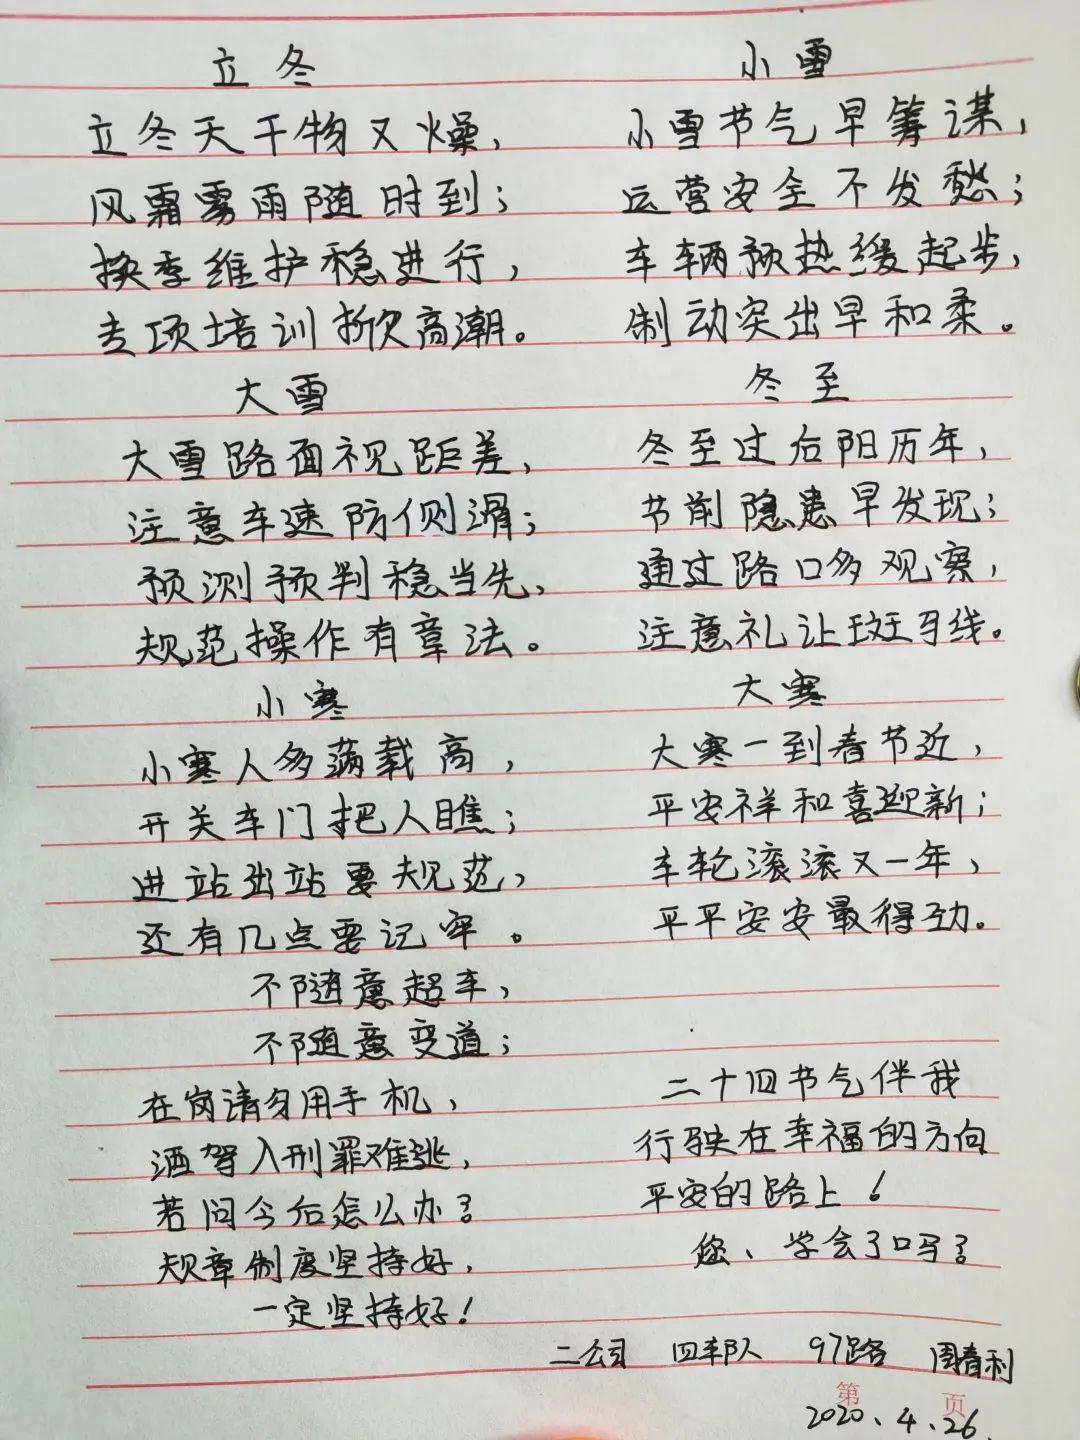 立冬
立冬天干物又燥，
风霜雾雨随时到；
换季维护稳进行，
专项培训掀高潮。
小雪
小雪节气早筹谋，
运营安全不发愁；
车辆预热缓起步，
制动突出早和柔。
大雪
大雪路面视距差，
注意车速防侧滑；
预测预判稳当先，
规范操作有章法。
冬至
冬至过后阳历年，
节前隐患早发现；
通过路口多观察，
注意礼让斑马线。
小寒
小寒人多满载高，
开关车门把人瞧；
进站出站要规范，
还有几点要记牢。
不随意超车，
不随意变道；
在岗请勿用手机，
酒驾入刑罪难逃，
若问今后怎么办？
规章制度坚持好，
一定坚持好！
大寒
大寒一到春节近，
平安祥和喜迎新；
车轮滚滚又一年，
平平安安最得劲。
二十四节气伴我
行驶在幸福的方向
平安的路上！
您、学会了吗？
二公司 四车队 97路 周春利
第 页
2020.4.26.